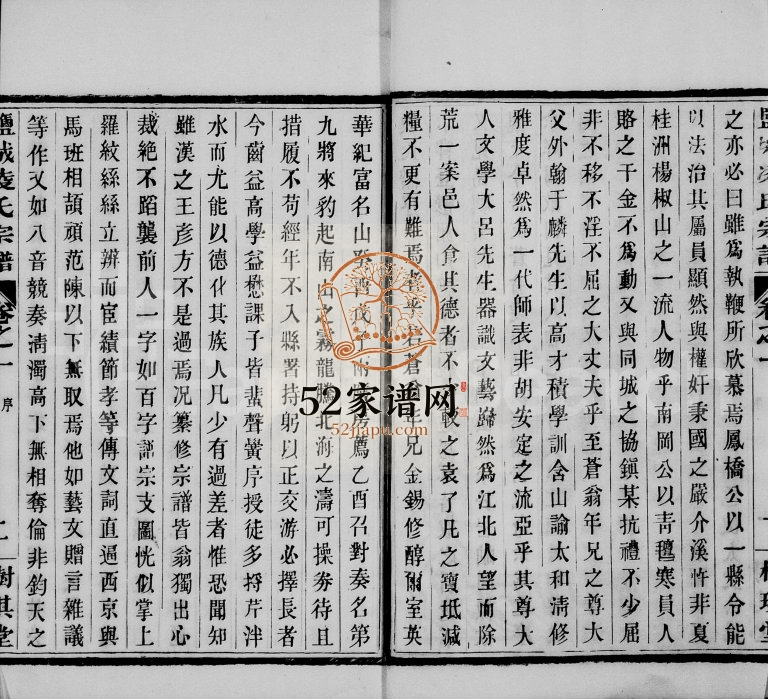 之亦必曰雖為執鞭所欣慕焉鳳橋公以一縣令能
以法治其屬員顯然與權奸秉國之嚴介溪忤非夏
桂洲楊椒山之一流人物乎南岡公以青氊寒員人
賂之千金不為動又與同城之協鎮某抗禮不少屈
非不移不淫不屈之大丈夫乎至蒼翁年兄之尊大
父外翰于麟先生以高才積學訓含山諭太和清修
雅度卓然為一代師表非胡安定之流亞乎其尊大
人文學大呂先生器識文藝蹢然為江北人望而除
荒一案邑人食其德者不 之袁了凡之寶坻減
糧不更有難焉者乎 蒼 兄金錫修醇爾室英
華紀富名山 酉 房薦乙酉召對奏名第
九將來豹起南山之霧龍騰北海之濤可操券待且
措履不苟經年不入縣署持躬以正交游必擇長者
今齒益高學益懋課子皆蜚聲黌序授徒多捋芹泮
水而尤能以德化其族人凡少有過差者惟恐聞知
雖漢之王彥方不是過焉况纂修宗譜皆翁獨出心
裁絕不蹈襲前人一字如百字 宗支圖恍似掌上
羅紋絲絲立辨而宦績節孝等傳文詞直逼西京與
馬班相頡頏范陳以下無取焉他如藝文贈言雜議
等作又如八音競奏清濁高下無相奪倫非鈞天之
鹽城凌氏宗譜 卷之一 序 二 樹淇堂
52家谱网
52jiapu.com